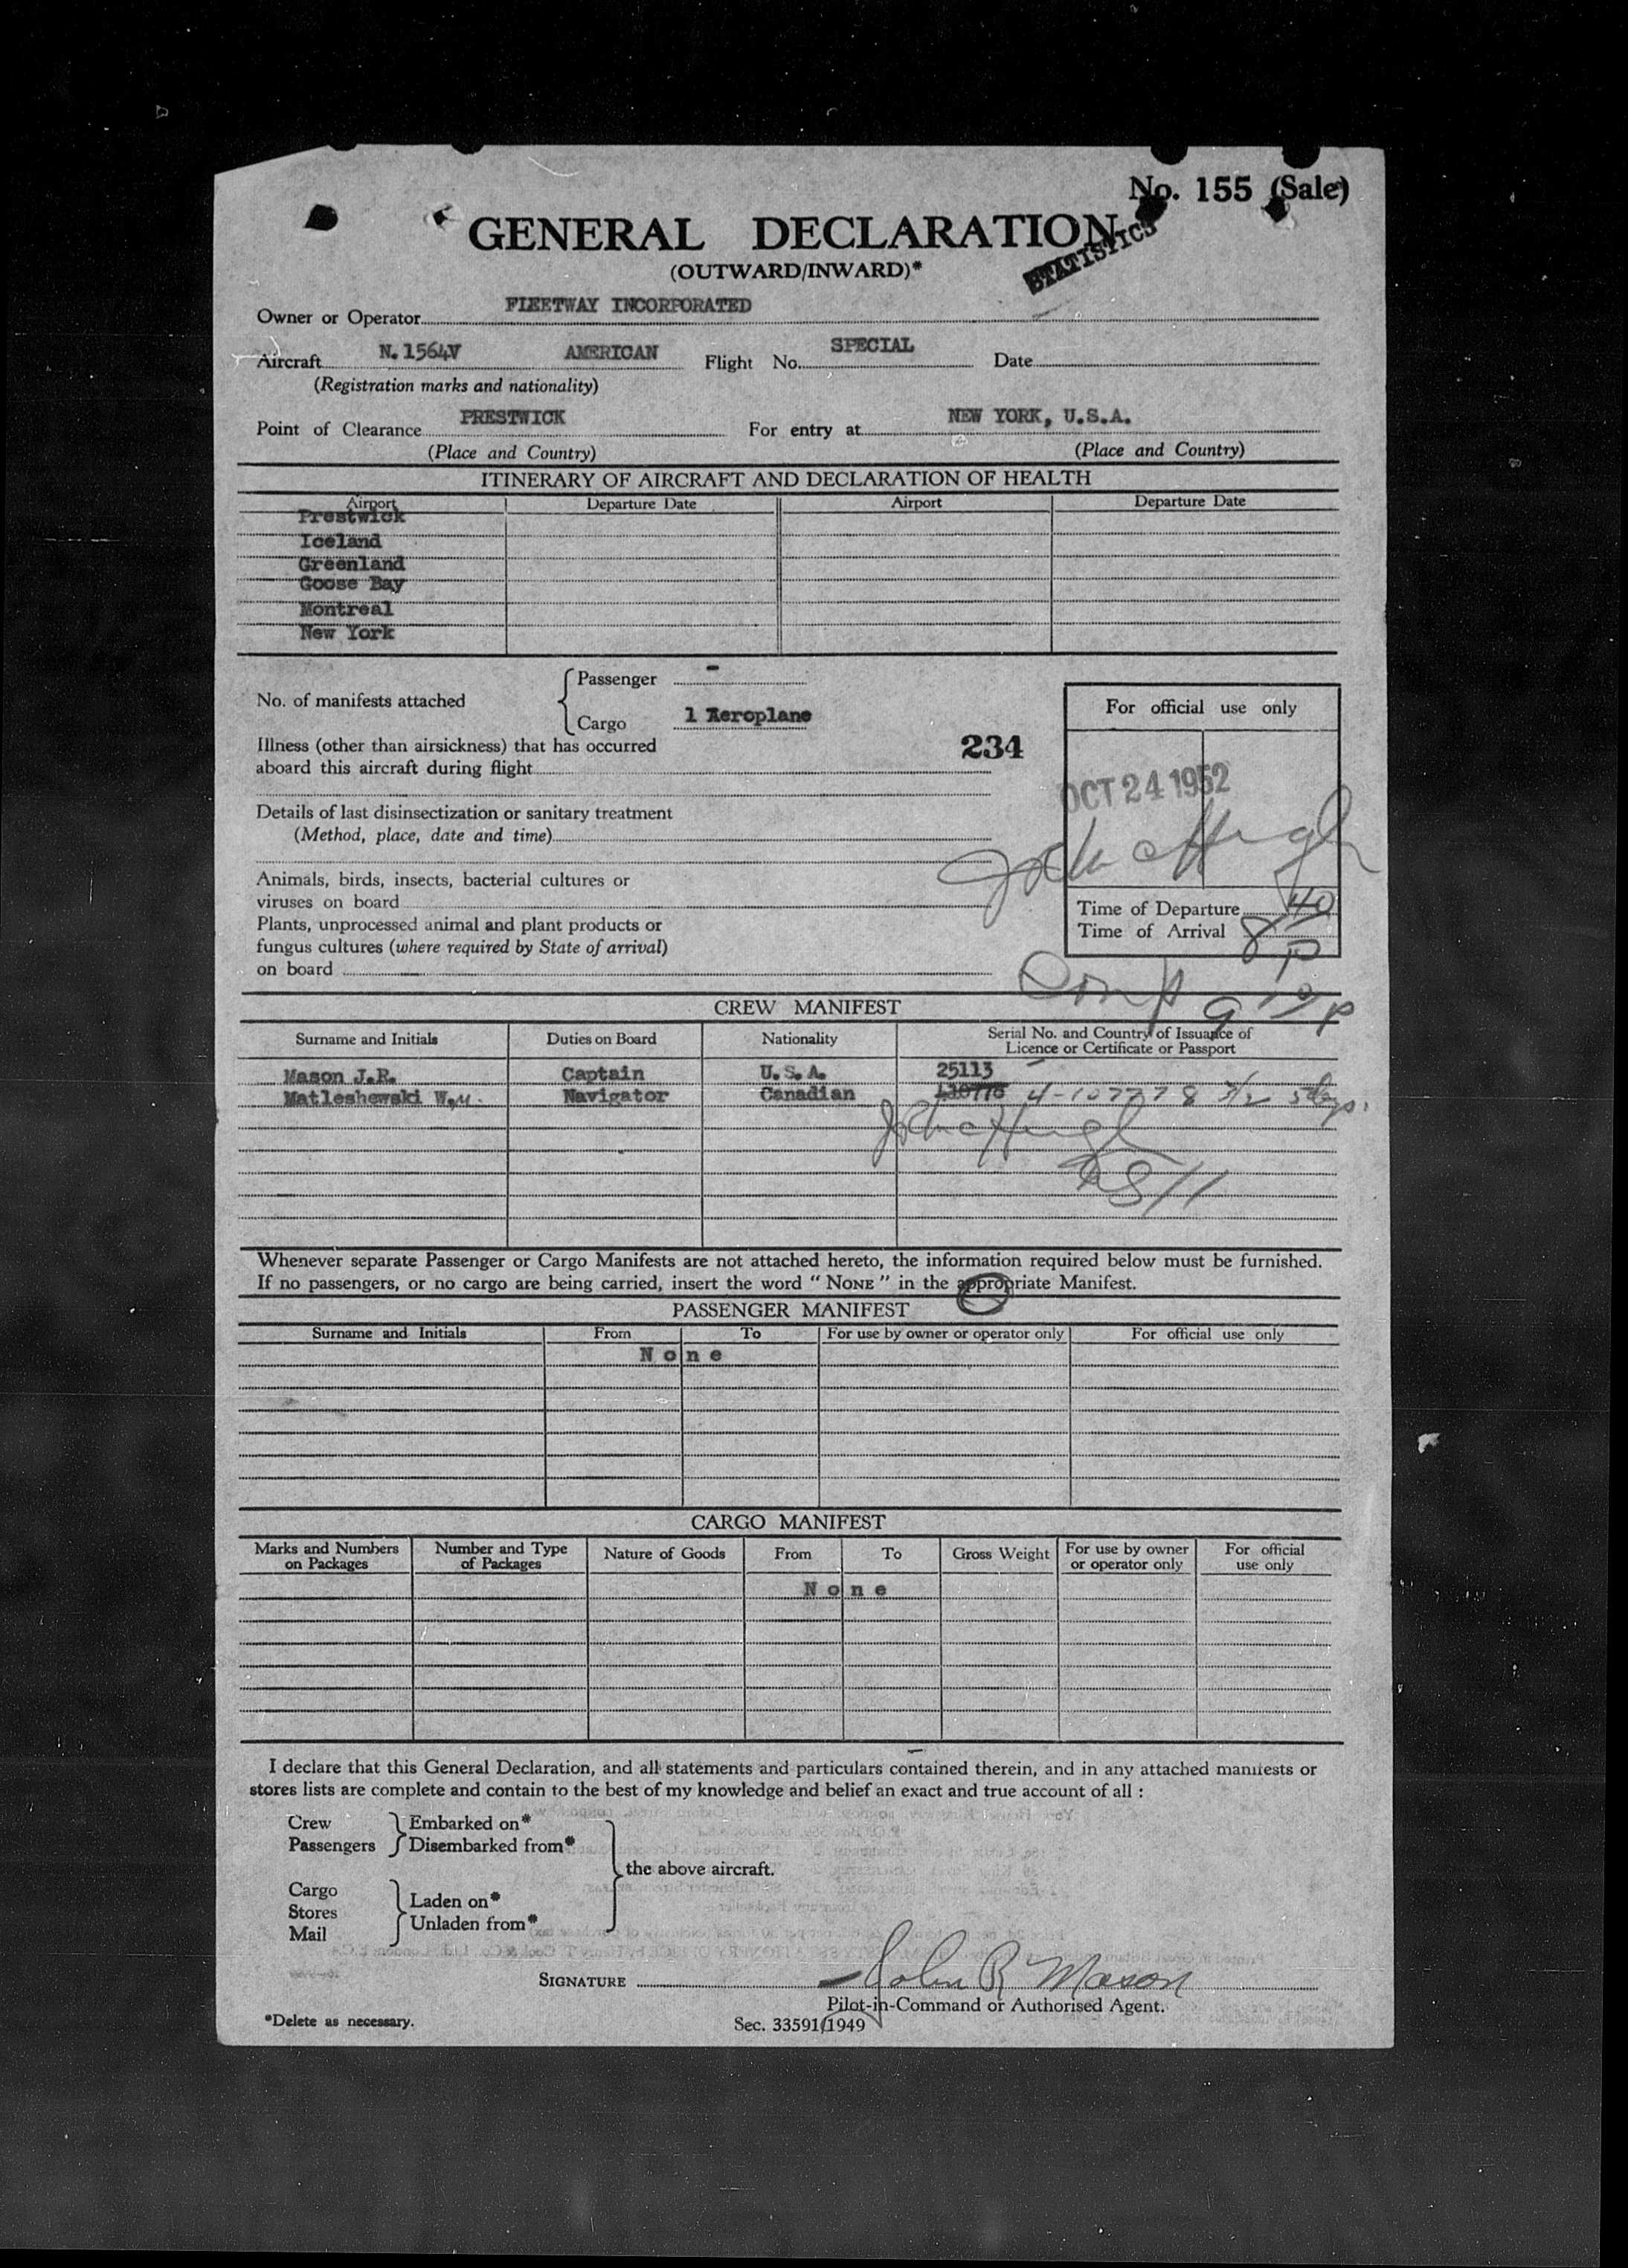 No. 155 (Sale)
GENERAL DECLARATION
STATISTICS
(OUTWARD/INWARD)*
Owner or Operator FLEETWAY INCORPORATED
Aircraft N.1564V AMERICAN Flight No. SPECIAL Date
(Registration marks and nationality)
Point of Clearance PRESTWICK For entry at NEW YORK, U.S.A.
(Place and Country) (Place and Country)
ITINERARY OF AIRCRAFT AND DECLARATION OF HEALTH
Airport Departure Date Airport Departure Date
Prestwick
Iceland
Greenland
Goose Bay
Montreal
New York
No. of manifests attached
Passenger -
Cargo 1 Aeroplane
For official use only
Illness (other than airsickness) that has occurred
aboard this aircraft during flight
234
OCT 24 1952
Details of last disinsectization or sanitary treatment
(Method, place, date and time)
Animals, birds, insects, bacterial cultures or
viruses on board
Time of Departure
Time of Arrival 8 40 P
Plants, unprocessed animal and plant products or
fungus cultures (where required by State of arrival)
on board
Comp 9 10 P
CREW MANIFEST
Surname and Initials Duties on Board Nationality Serial No. and Country of Issuance of
Licence or Certificate or Passport
Mason J.R. Captain U.S.A. 25113
Matleshewski W.M. Navigator Canadian 4-107778
Whenever separate Passenger or Cargo Manifests are not attached hereto, the information required below must be furnished.
If no passengers, or no cargo are being carried, insert the word "NONE" in the appropriate Manifest.
PASSENGER MANIFEST
Surname and Initials From To For use by owner or operator only For official use only
None
CARGO MANIFEST
Marks and Numbers on Packages Number and Type of Packages Nature of Goods From To Gross Weight For use by owner or operator only For official use only
None
I declare that this General Declaration, and all statements and particulars contained therein, and in any attached manifests or
stores lists are complete and contain to the best of my knowledge and belief an exact and true account of all :
Crew Embarked on*
Passengers Disembarked from*
the above aircraft.
Cargo
Stores Laden on*
Mail Unladen from*
SIGNATURE John R Mason
Pilot-in-Command or Authorised Agent.
*Delete as necessary.
Sec. 33591/1949